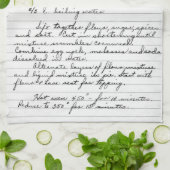 2/3 c. boiling water
Sift together flour, sugar, spices
and salt. Cut in shortening until
mixture resembles cornmeal.
Combine egg yolk, molasses, and soda
dissolved in water.
Alternate layers of flour mixture
and liquid mixture in pie. Start with
flour + save rest for topping.
Hot oven 450° for 10 minutes.
Reduce to 350° for 15 minutes.